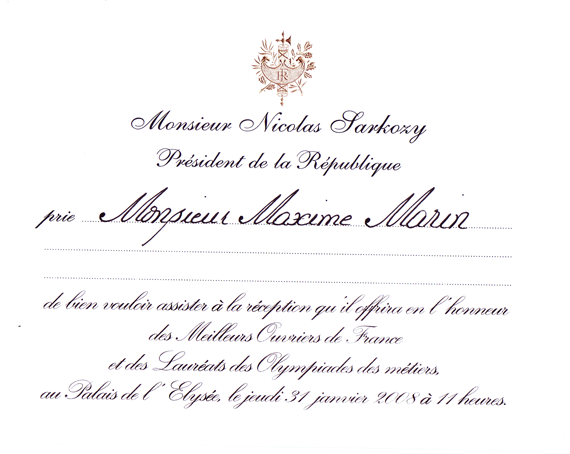 RF
Monsieur Nicolas Sarkozy
Président de la République
prie Monsieur Maxime Marin
de bien vouloir assister à la réception qu'il offrira en l'honneur
des Meilleurs Ouvriers de France
et des Lauréats des Olympiades des métiers,
au Palais de l'Elysée, le jeudi 31 janvier 2008 à 11 heures.